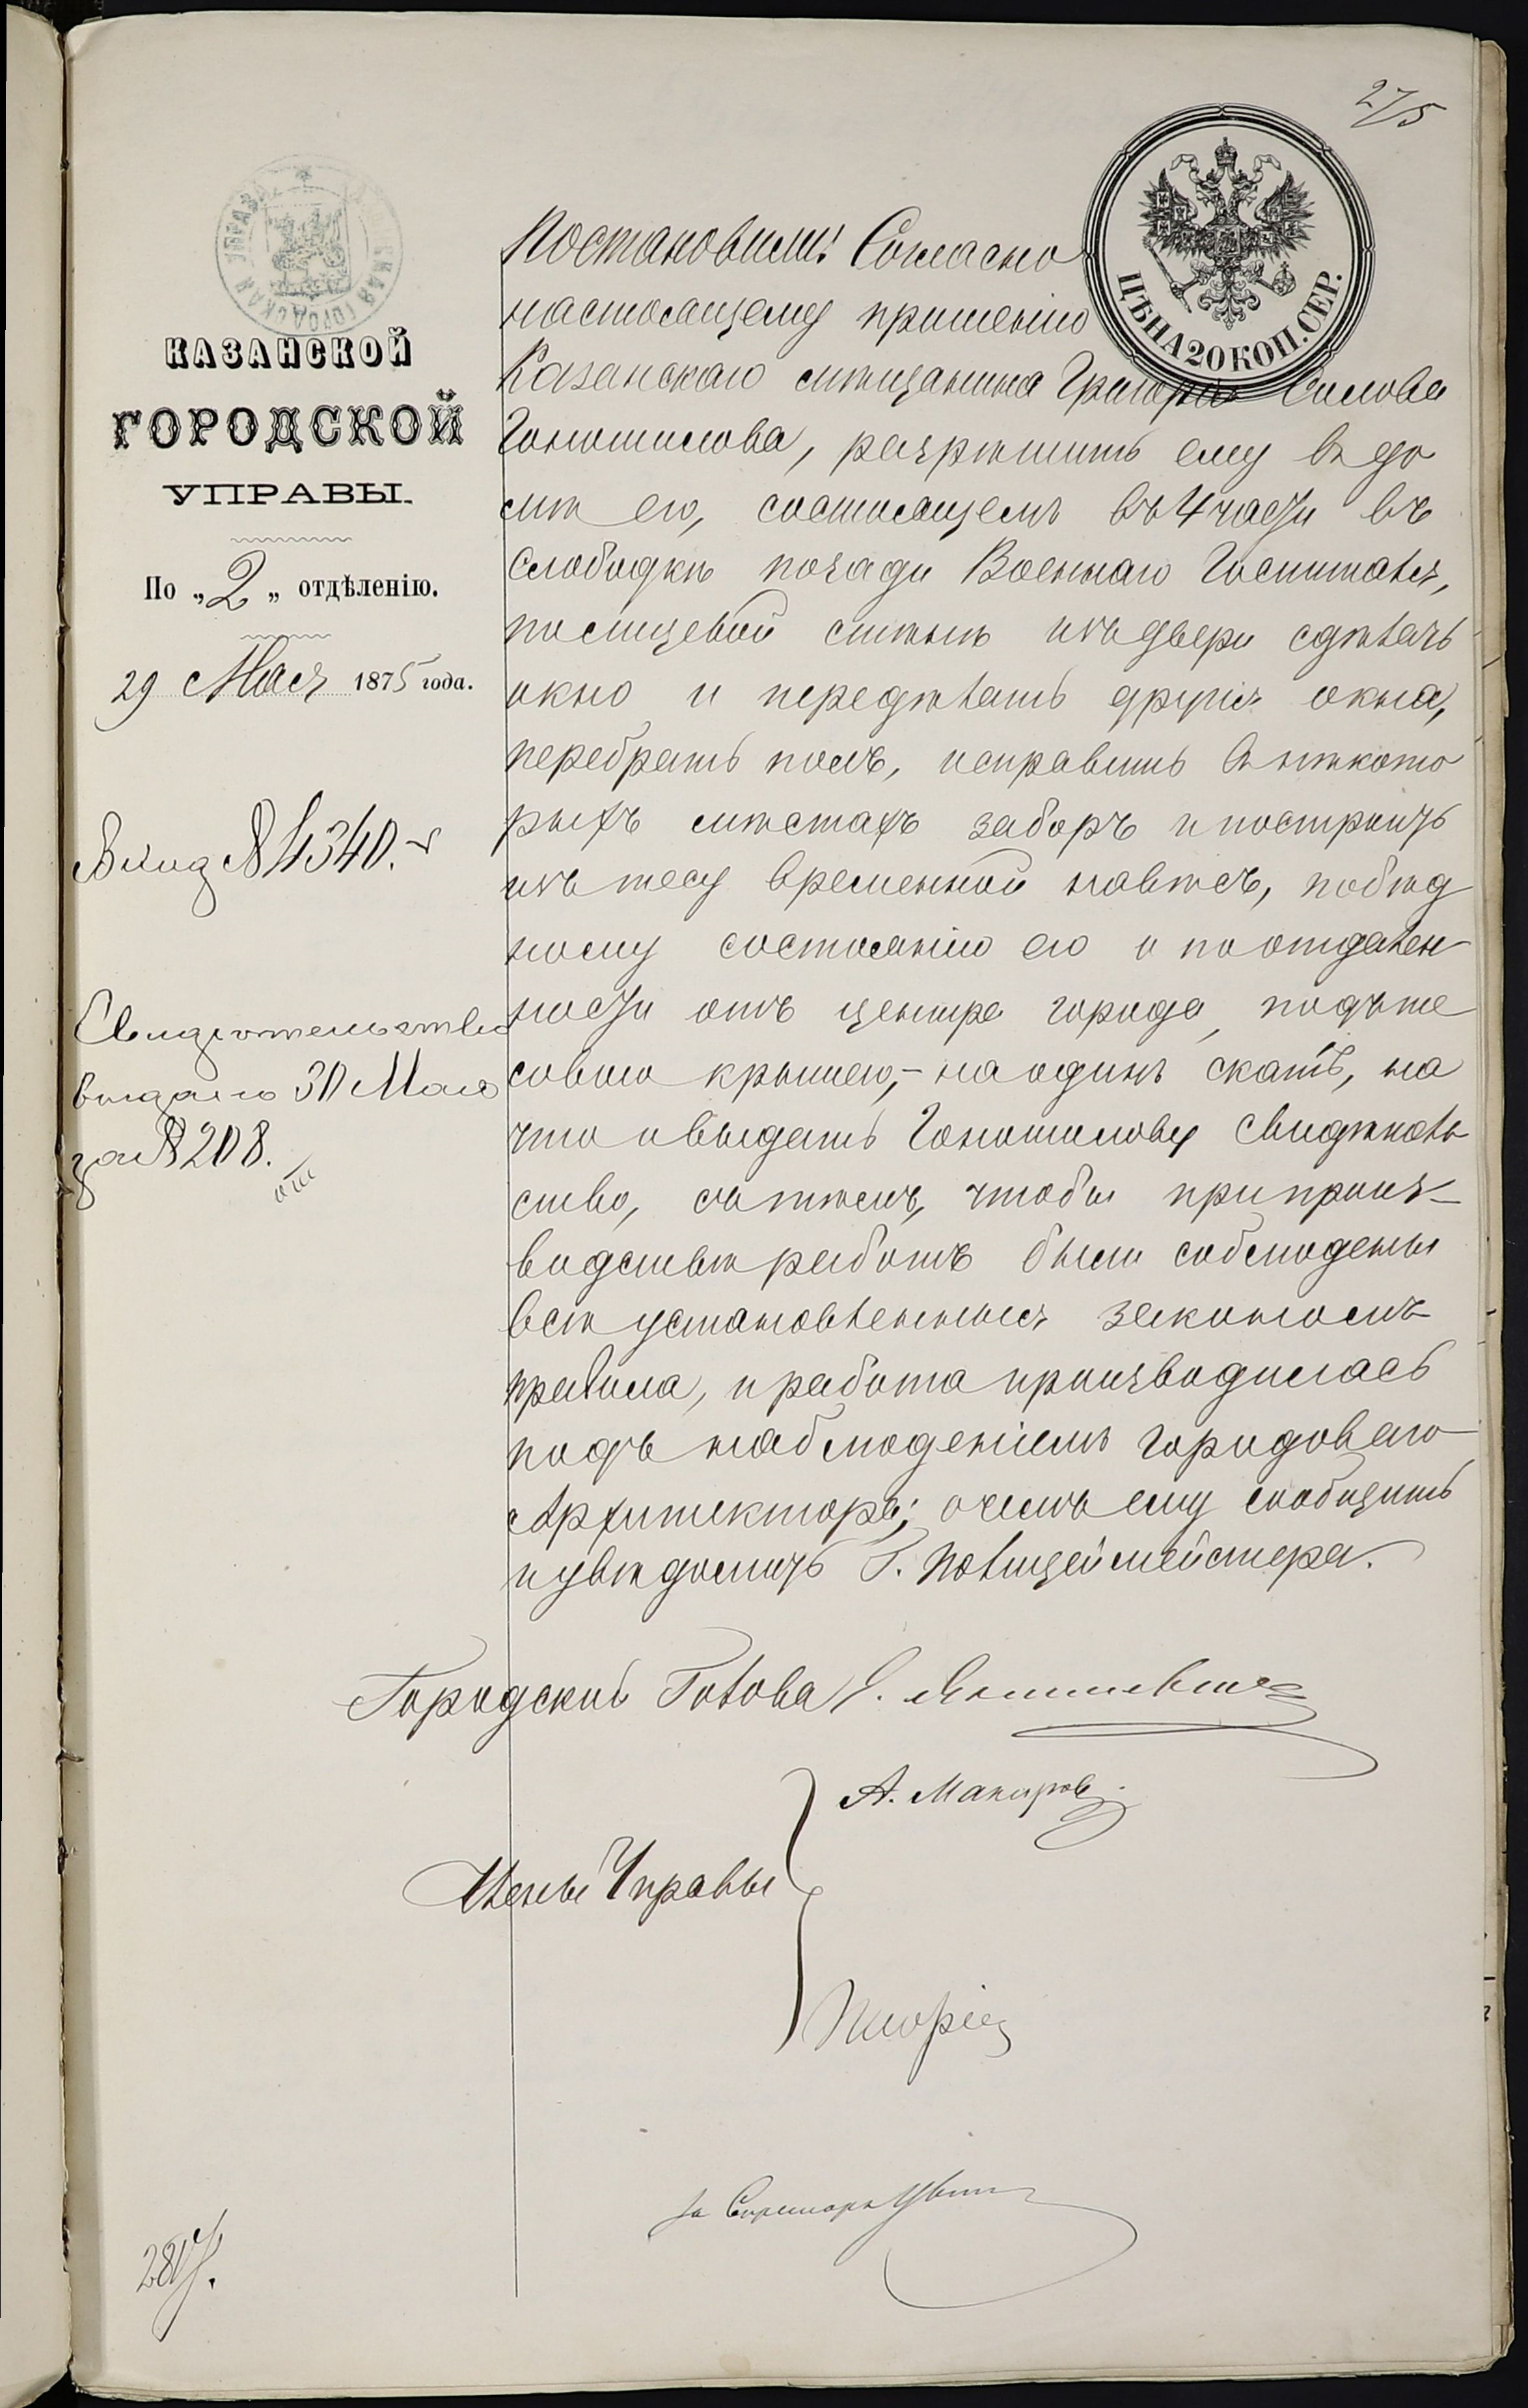 275
КАЗАНСКАЯ ГОРОДСКАЯ УПРАВА
ЦѢНА 20 КОП. СЕР.
КАЗАНСКОЙ
ГОРОДСКОЙ
УПРАВЫ.
По „2„ отдѣленію.
29 Мая 1875 года.
Вход № 4340.
Свидѣтельство
выдано 30 Мая
за № 208.
Постановили: Согласно
настоящему прошенію
Казанскаго мѣщанина Григорія Силова
Гоношилова, разрѣшить ему въ до
мѣ его, состоящемъ въ 4 части въ
Слободкѣ позади Военнаго Госпиталя,
по лицевой стѣнѣ изъ двери сдѣлать
окно и передѣлать другія окна,
перебрать полъ, исправить въ нѣкото
рыхъ мѣстахъ заборъ и построить
изъ тесу временной навѣсъ, по бѣд
ному состоянію его и по отдален
ности отъ центра города, подъ те
совою крышею,- на одинъ скатъ, на
что и выдать Гоношилову Свидѣтель
ство, съ тѣмъ, чтобы при произ-
водствѣ работъ были соблюдены
всѣ установленныя закономъ
правила, и работа производилась
подъ наблюденіемъ Городоваго
Архитектора; о чемъ ему сообщить
и увѣдомить Г. Полицеймейстера.
Городской Голова Э. Янишевскій
А. Макаров
Члены Управы
за Секретаря